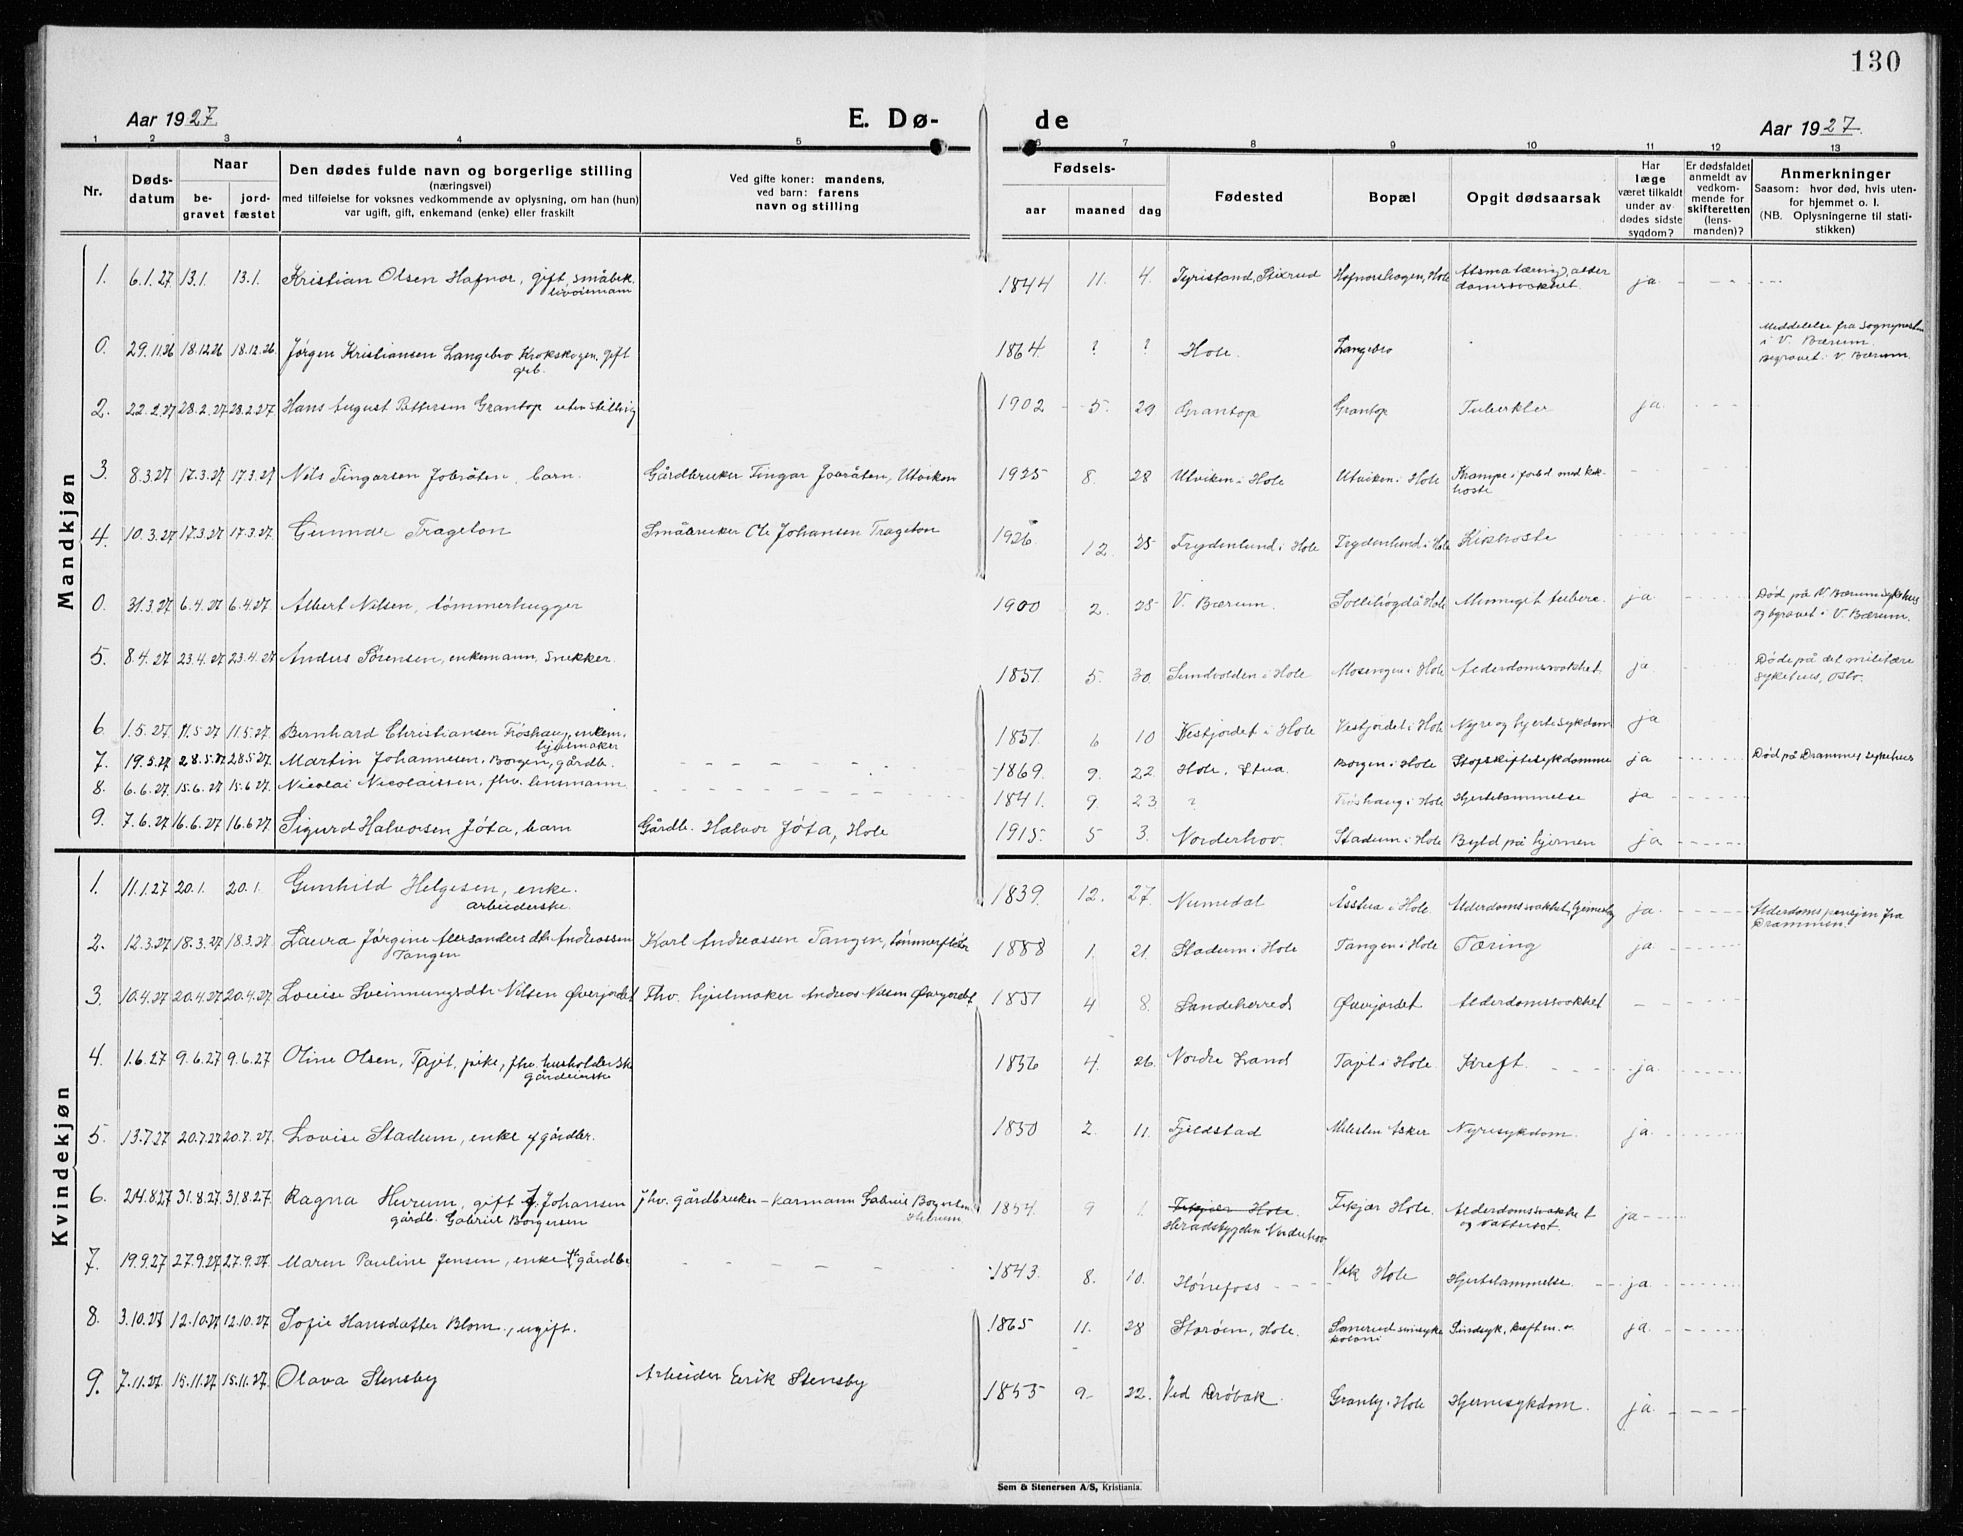 130
Aar 1927. E. Dø- de Aar 1927.
1 2 3 4 5 6 7 8 9 10 11 12 13
Nr. Døds-datum Naar be-gravet jord-fæstet Den dødes fulde navn og borgerlige stilling (næringsvei) med tilføielse for voksnes vedkommende av oplysning, om han (hun) var ugift, gift, enkemand (enke) eller fraskilt Ved gifte koner: mandens, ved barn: farens navn og stilling Fødsels- aar maaned dag Fødested Bopæl Opgit dødsaarsak Har læge været tilkaldt under av-dødes sidste sygdom? Er dødsfaldet anmeldt av vedkom-mende for skifteretten (lens-manden)? Anmerkninger Saasom: hvor død, hvis uten-for hjemmet o. l. (NB. Oplysningerne til stati-stikken)
Mandkjøn
1. 6.1.27 13.1. 13.1. Kristian Olsen Hafnor, gift, småbr. 1844 11. 4. Tyristrand, Hafnorshagen, Hole alderdomssvakhet. ja
0. 29.11.26 18.12.26 18.12.26 Jørgen Kristiansen Langebro Krokskogen, gift grb. 1864. ? ? Hole. Langebro Meddelelse fra Sognepresten i V. Bærum. Begravet i V. Bærum.
2. 22.2.27 28.2.27 28.2.27 Hans August Pettersen Grantop uten stilling 1902 5. 29 Grantop Grantop Tuberkler ja
3. 8.3.27 17.3.27 17.3.27 Nils Tingarsen Jobråten, barn. Gårdbruker Tingar Jobråten, Utviken 1925 8. 28 Utviken i Hole Utviken i Hole Krampe i forbd med kik-hoste
4. 10.3.27 17.3.27 17.3.27 Gunnar Trageton Småbruker Ole Johansen Trageton 1926 12. 25 Frydenlund i Hole Frydenlund i Hole Kikhoste
0. 31.3.27 6.4.27 6.4.27. Albert Nilsen, tømmerhugger 1900 2. 25 V. Bærum. Sollihøgda Hole ja Død på V. Bærum sykehus og begravet i V. Bærum.
5. 8.4.27 23.4.27 23.4.27 Anders Sørensen, enkemann, snekker. 1851. 5. 30 Sundvolden i Hole Mosengen i Hole Alderdomssvakhet. ja Døde på det militære sykehus, Oslo.
6 1.5.27 11.5.27 11.5.27 Bernhard Christiansen Frøshaug, enkem. hjulmaker 1851. 6 10 Vestjordet i Hole Vestjordet i Hole Nyre og hjertesykdom ja
7. 19.5.27 28.5.27 28.5.27. Martin Johannesen, Borgen, gårdb. 1869. 9. 22 Hole, Stua Borgen i Hole Stofskiftesykdomme ja Død på Drammens sykehus
8. 6.6.27 15.6.27 15.6.27. Nicolai Nicolaissen, fhv. lensmann 1841. 9 23 ? Frøshaug i Hole Hjertelammelse ja
9. 7.6.27 16.6.27 16.6.27 Sigurd Halvorsen Jøta, barn Gårdb. Halvor Jøta, Hole 1915. 5 3. Norderhov. Stadum i Hole Byld på hjernen ja
Kvindekjøn
1. 11.1.27 20.1. 20.1. Gunhild Helgesen, enke. arbeiderske. 1839. 12. 27. Numedal Åsstua i Hole. Alderdomssvakhet, ja. Alderdomspensjon fra Drammen.
2. 12.3.27 18.3.27 18.3.27 Laura Jørgine Aleksandersdtr Andreassen Tangen Karl Andreassen Tangen, tømmerfløter 1888 1. 21. Stadum i Hole Tangen i Hole Tæring ja
3. 10.4.27 20.4.27 20.4.27. Lovise Sveinnungsdtr Nilsen Øverjordet Fhv. hjulmaker Andreas Nilsen Øverjordet 1851 4 8. Sandeherred Øverjordet Alderdomssvakhet
4. 1.6.27 9.6.27 9.6.27 Oline Olsen, Tajet, pike, fhv. husholderske gårdeierske 1856 4. 26 Nordre Land Tajet i Hole Kreft. ja
5. 13.7.27 20.7.27 20.7.27. Lovise Stadum, enke f gårdbr. 1850 2. 11. Fjeldstad Asker Nyresykdom. ja
6. 24.8.27 31.8.27 31.8.27. Ragna Hurum, gift f. Johansen gårdb. Gabriel Borgersen fhv. gårdbruker - Gabriel Hurum 1854. 9 1. Fekjær Hole. Heradsbygden Norderhov Fekjær Hole. Alderdomssvakhet og vattersot. ja
7. 19.9.27 27.9.27 27.9.27. Maren Pauline Jensen, enke gårdbr 1843. 8. 10. Hønefoss Vik Hole Hjertelammelse. ja
8. 3.10.27 12.10.27 12.10.27 Sofie Hansdatter Blom, ugift. 1865 11. 28 Storøen, Hole. Sanerud sinsyke koloni Sindsyk, kreft m.v. ja
9. 7.11.27. 15.11.27 15.11.27. Olava Stensby Arbeider Erik Stensby 1853 9 22. Ved Drøbak. Granly i Hole Hjernesykdom. ja
Sem & Stenersen A/S, Kristiania.